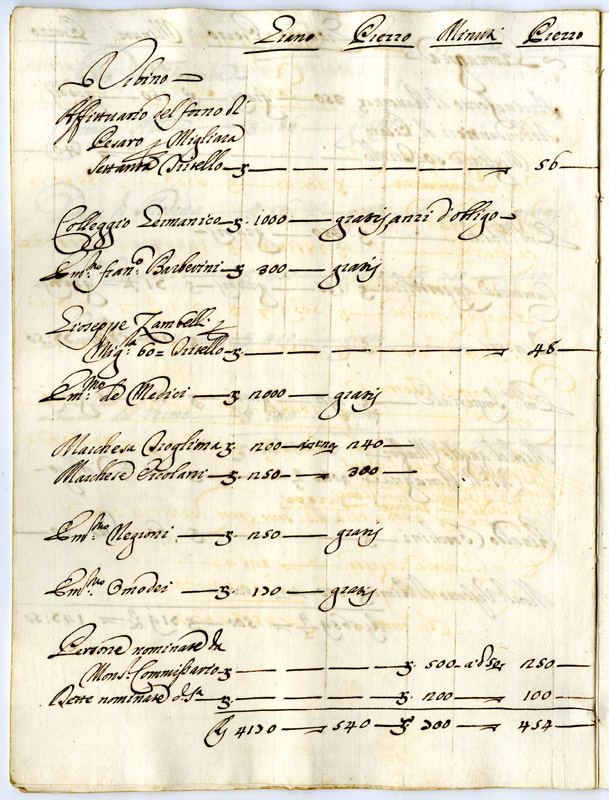 Grano Prezzo Minuti Prezzo
Urbino
Affittuario del forno di
Pesaro Migliara
settanta Tritello — 56
Colleggio Germanico — 1000 — gratis, anzi d'obligo
Em.mo Fran.co Barberini — 300 — gratis
Giuseppe Zambelli
Mig.ra 60= Tritello — 48
Em.mo de Medici — 2000 — gratis
Marchesa — 200 — 240
Marchese Ercolani — 250 — 300
Em.mo Negroni — 250 — gratis
Em.mo Omodei — 130 — gratis
Persone nominate da
Mons.r Commissario — 500 — 250
Dette nominate — 200 — 100
4130 — 540 — 700 — 454